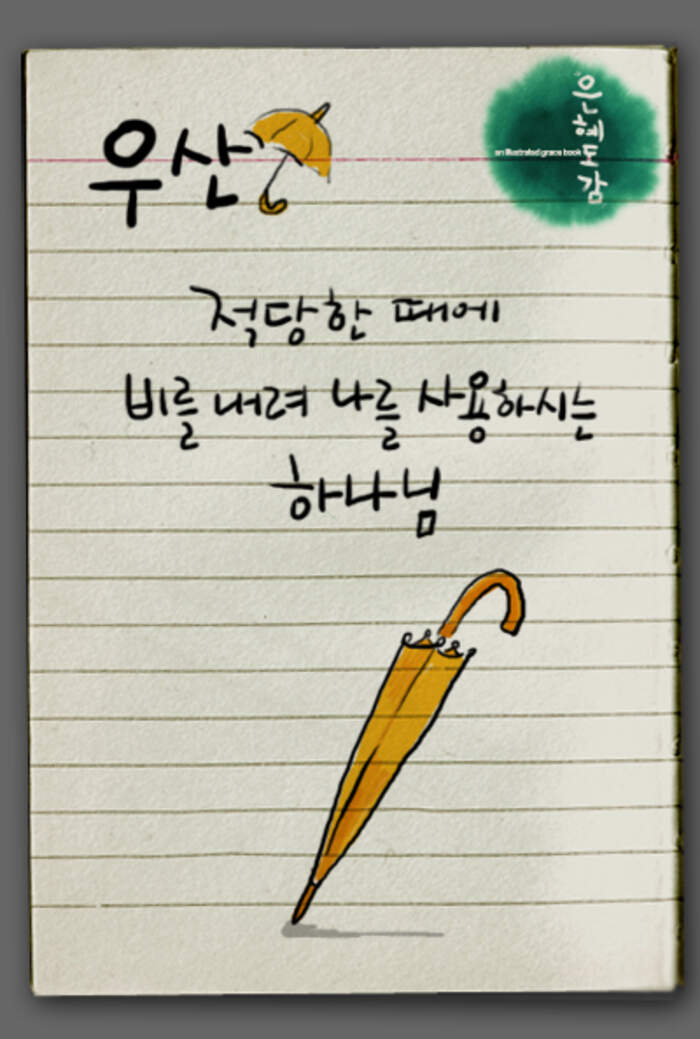 우산
은혜도감
an illustrated grace book
적당한 때에
비를 내려 나를 사용하시는
하나님